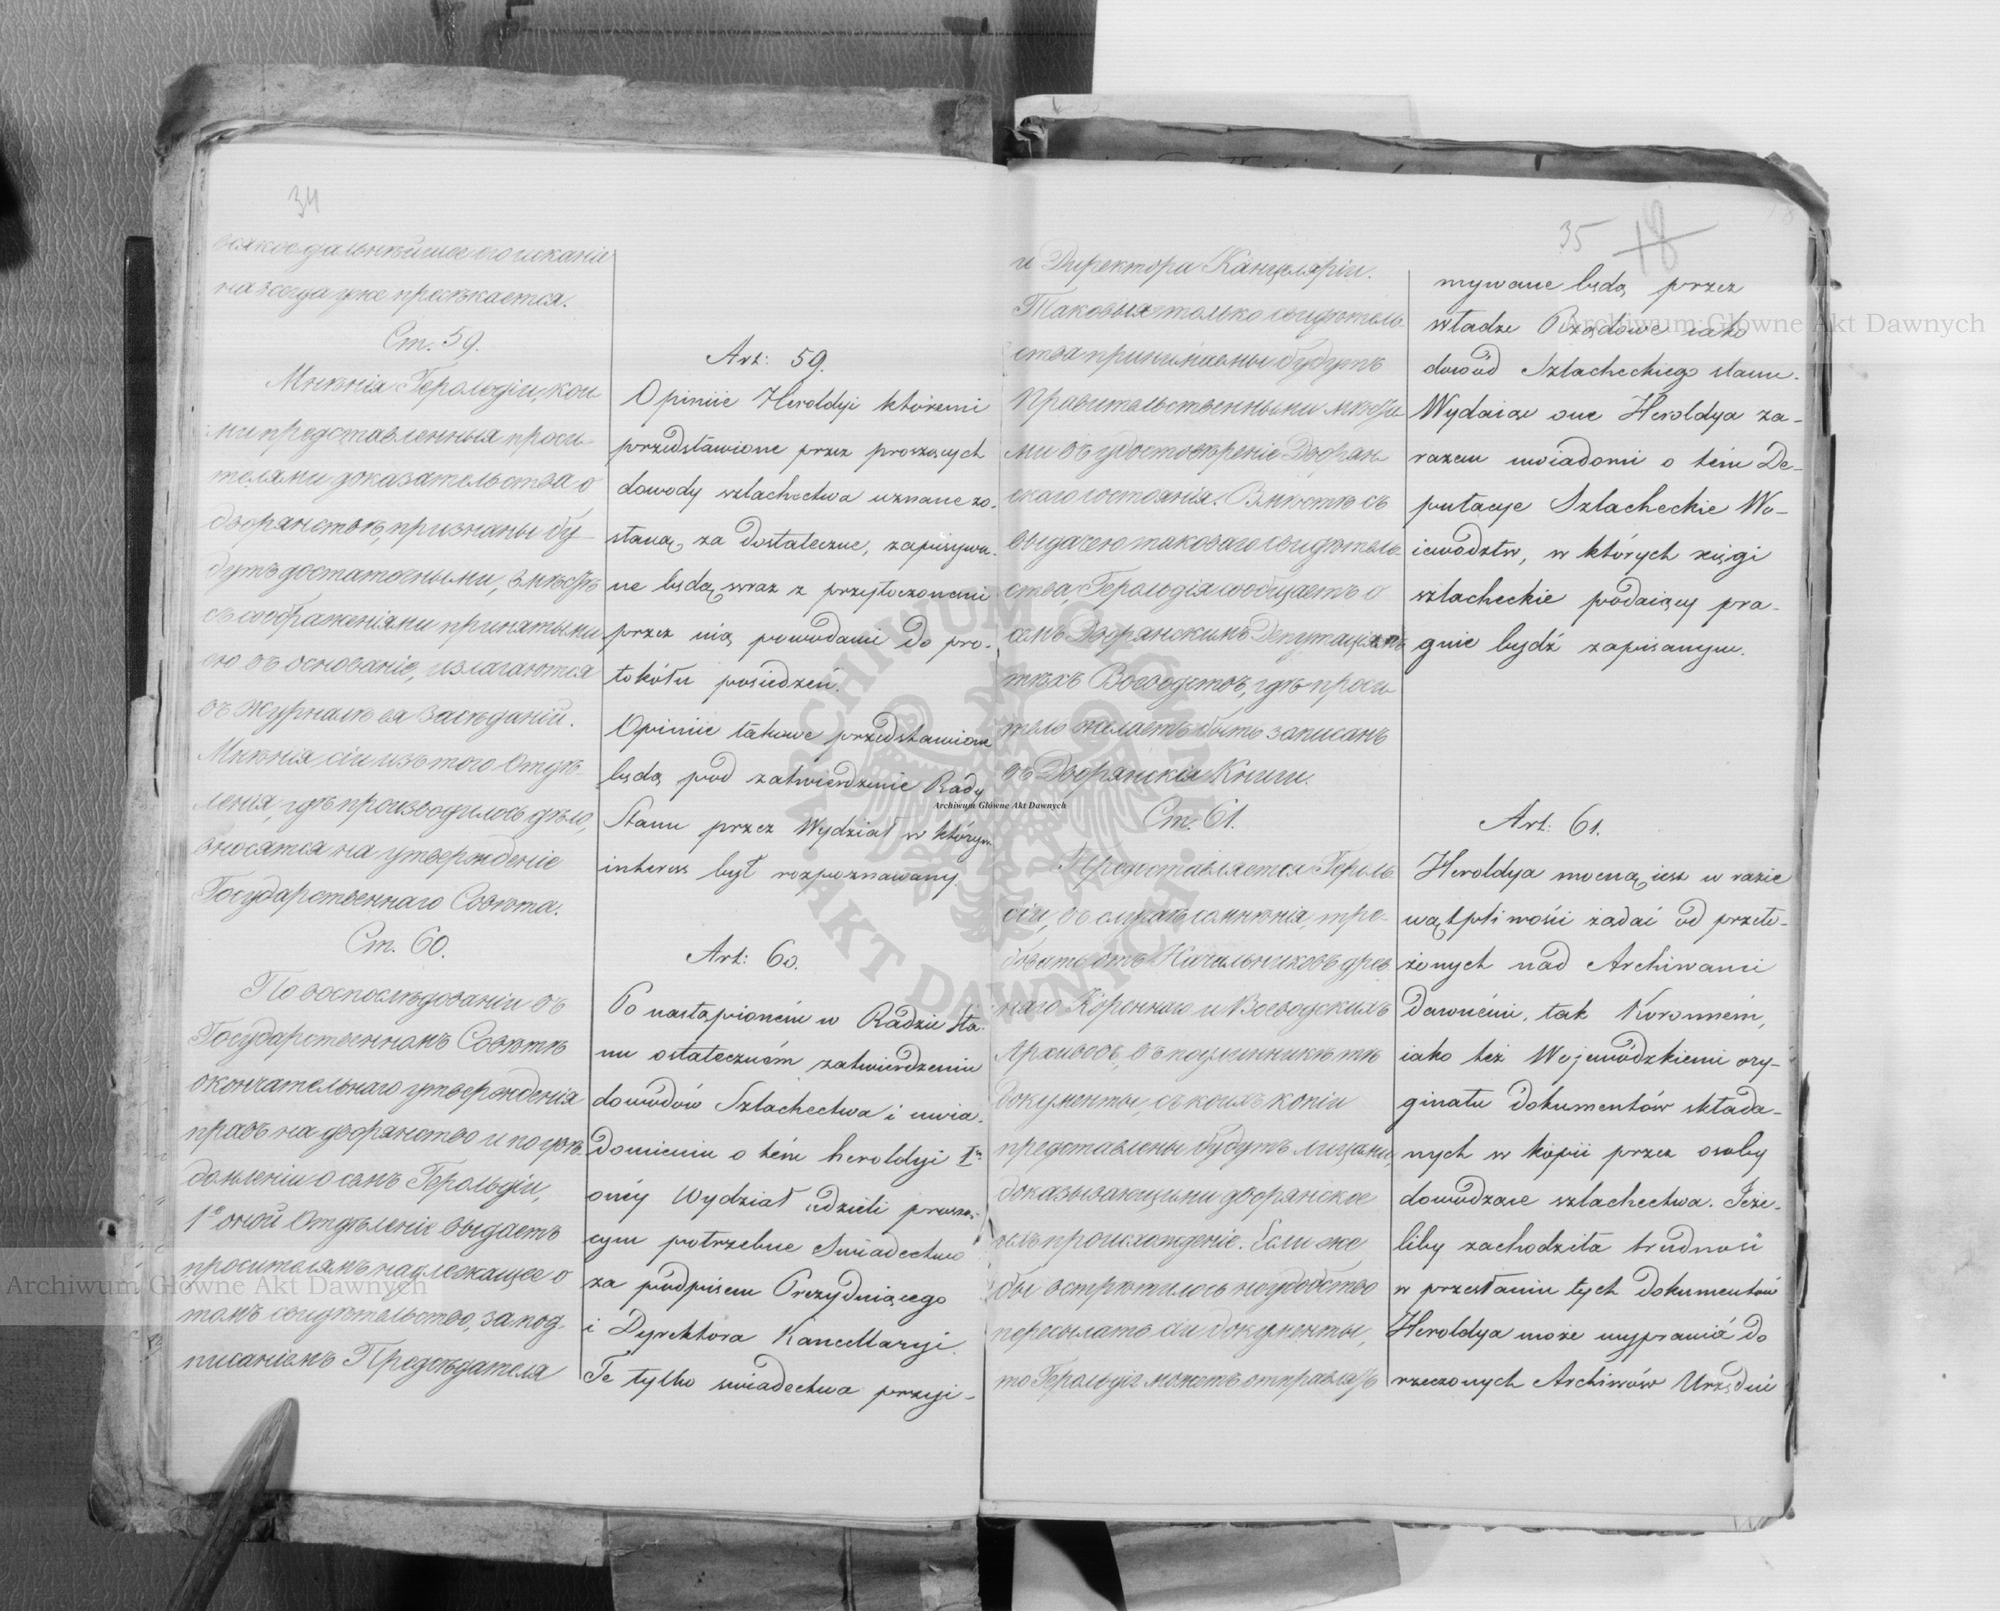 34
всякое дальнѣйшее его исканіе
на всегда уже пресѣкается.
Ст. 59.
Мнѣнія Герольдіи, кои
ми представленныя проси-
телями доказательства о
дворянствѣ, признаны бу-
дутъ достаточными, вмѣстѣ
съ соображеніями принятыми
ею въ основаніе, излагаются
въ журналѣ ея засѣданій.
Мнѣнія сіи изъ того Отдѣ-
ленія, гдѣ производилось дѣло,
вносятся на утвержденіе
Государственнаго Совѣта.
Ст. 60.
По воспослѣдованіи въ
Государственномъ Совѣтѣ
окончательнаго утвержденія
правъ на дворянство и по увѣ-
домленіи о семъ Герольдіи,
1е оной Отдѣленіе выдаетъ
просителямъ надлежащее о
томъ свидѣтельство, за под-
писаніемъ Предсѣдателя
Art: 59.
Opiniie Heroldyi któremi
przedstawione przez proszących
dowody szlachectwa uznane zo-
staną za dostateczne, zapisywa-
ne będą wraz z przytoczonemi
przez nią powodami do pro-
tokółu posiedzeń.
Opiniie takowe przedstawione
będą pod zatwierdzenie Rady
Stanu przez Wydział w którym
interess był rozpoznawany.
Art: 60.
Po nastąpioném w Radzie Sta-
nu ostateczném zatwierdzeniu
dowodów Szlachectwa i uwia-
domieniu o tém heroldyi Iszy
onéy Wydział udzieli proszą-
cym potrzebne Świadectwo
za podpisem Prezyduiącego
i Dyrektora Kancellaryi.
Te tylko swiadectwa przyj-
35 18
и Директора Канцеляріи.
Таковыя только свидѣтель
ства принимаемы будутъ
Правительственными мѣста
ми въ удостовѣреніе Дворян
скаго состоянія. Вмѣстѣ съ
выдачею таковаго свидѣтель
ства, Герольдія сообщаетъ о
семъ Дворянскимъ Депутаціямъ
тѣхъ Воеводствъ, гдѣ проси
тель желаетъ быть записанъ
въ Дворянскія Книги.
Ст. 61.
Предоставляется Героль
діи, въ случаѣ сомнѣнія, тре-
бовать отъ Начальниковъ древ
няго Короннаго и Воеводскихъ
Архивовъ, въ подлинникѣ тѣ
документы, съ коихъ копіи
представлены будутъ лицами,
доказывающими дворянское
ихъ происхожденіе. Если же
бы встрѣтилось неудобство
пересылать сіи документы,
то Герольдія можетъ отправлять
mywane będą przez
władze Rządowe iako
dowód Szlacheckiego stanu.
Wydaiąc one Heroldya za-
razem uwiadomi o tém De-
putacye Szlacheckie Wo-
iewodztw, w których xięgi
szlacheckie podaiący pra-
gnie bydź zapisanym.
Art: 61.
Heroldya mocną iest w razie
wątpliwości żądać od przeło-
żonych nad Archiwami
Dawnémi, tak Koronném,
iako też Wojewódzkiemi ory-
ginału dokumentów składa-
nych w kopii przez osoby
dowodzące szlachectwa. Jeże-
liby zachodziła trudność
w przesłaniu tych dokumentów
Heroldya może wyprawiać do
rzeczonych Archiwów Urzędni
Archiwum Główne Akt Dawnych
Archiwum Główne Akt Dawnych
Archiwum Główne Akt Dawnych
ARCHIWUM GŁÓWNE AKT DAWNYCH